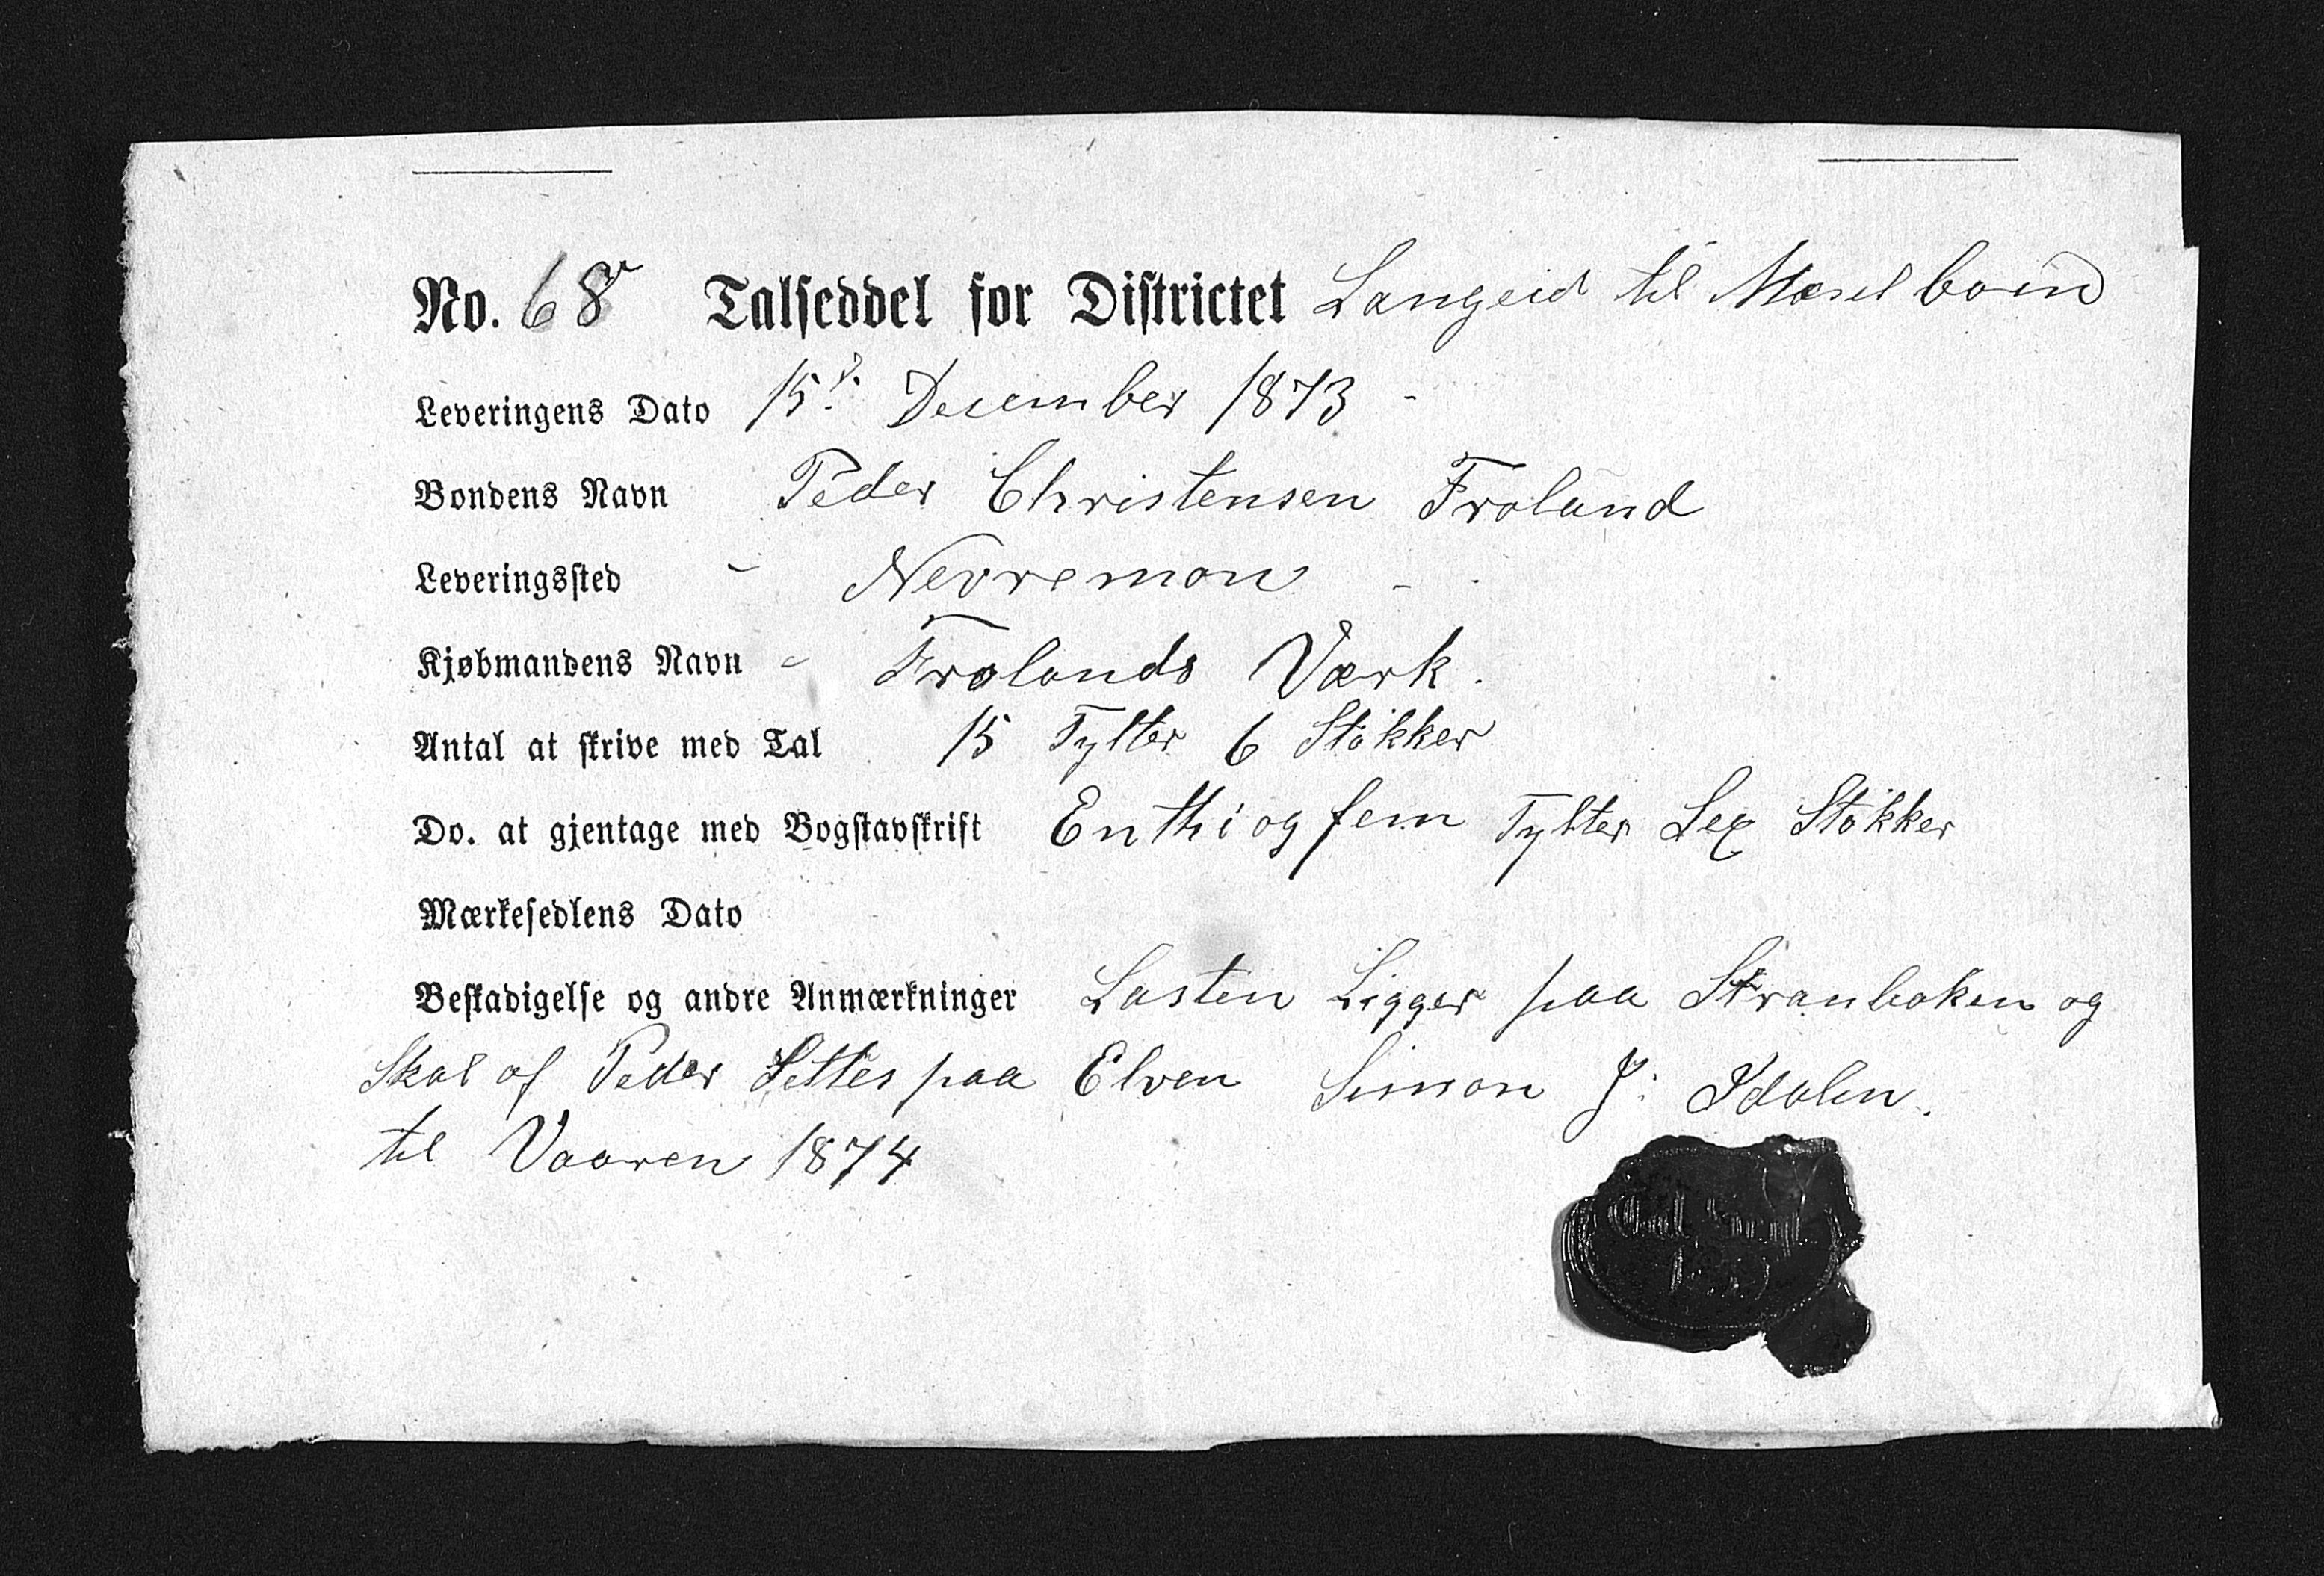 No. 68 Talseddel for Districtet Langeid til Mæsel boind
Leveringens Dato 15d. December 1873 -
Bondens Navn Peder Christensen Froland
Leveringssted - Nevremon -
Kjøbmandens Navn - Frolands Værk.
Antal at skrive med Tal 15 Tylter 6 Stökker
Do. at gjentage med Bogstavskrift En thi og fem Tylter Sex Stökker
Mærkesedlens Dato
Beskadigelse og andre Anmærkninger Lasten Ligger paa Stranbaken og
Skal af Peder Settes paa Elven Simon J: Idalen.
til Vaaren 1874